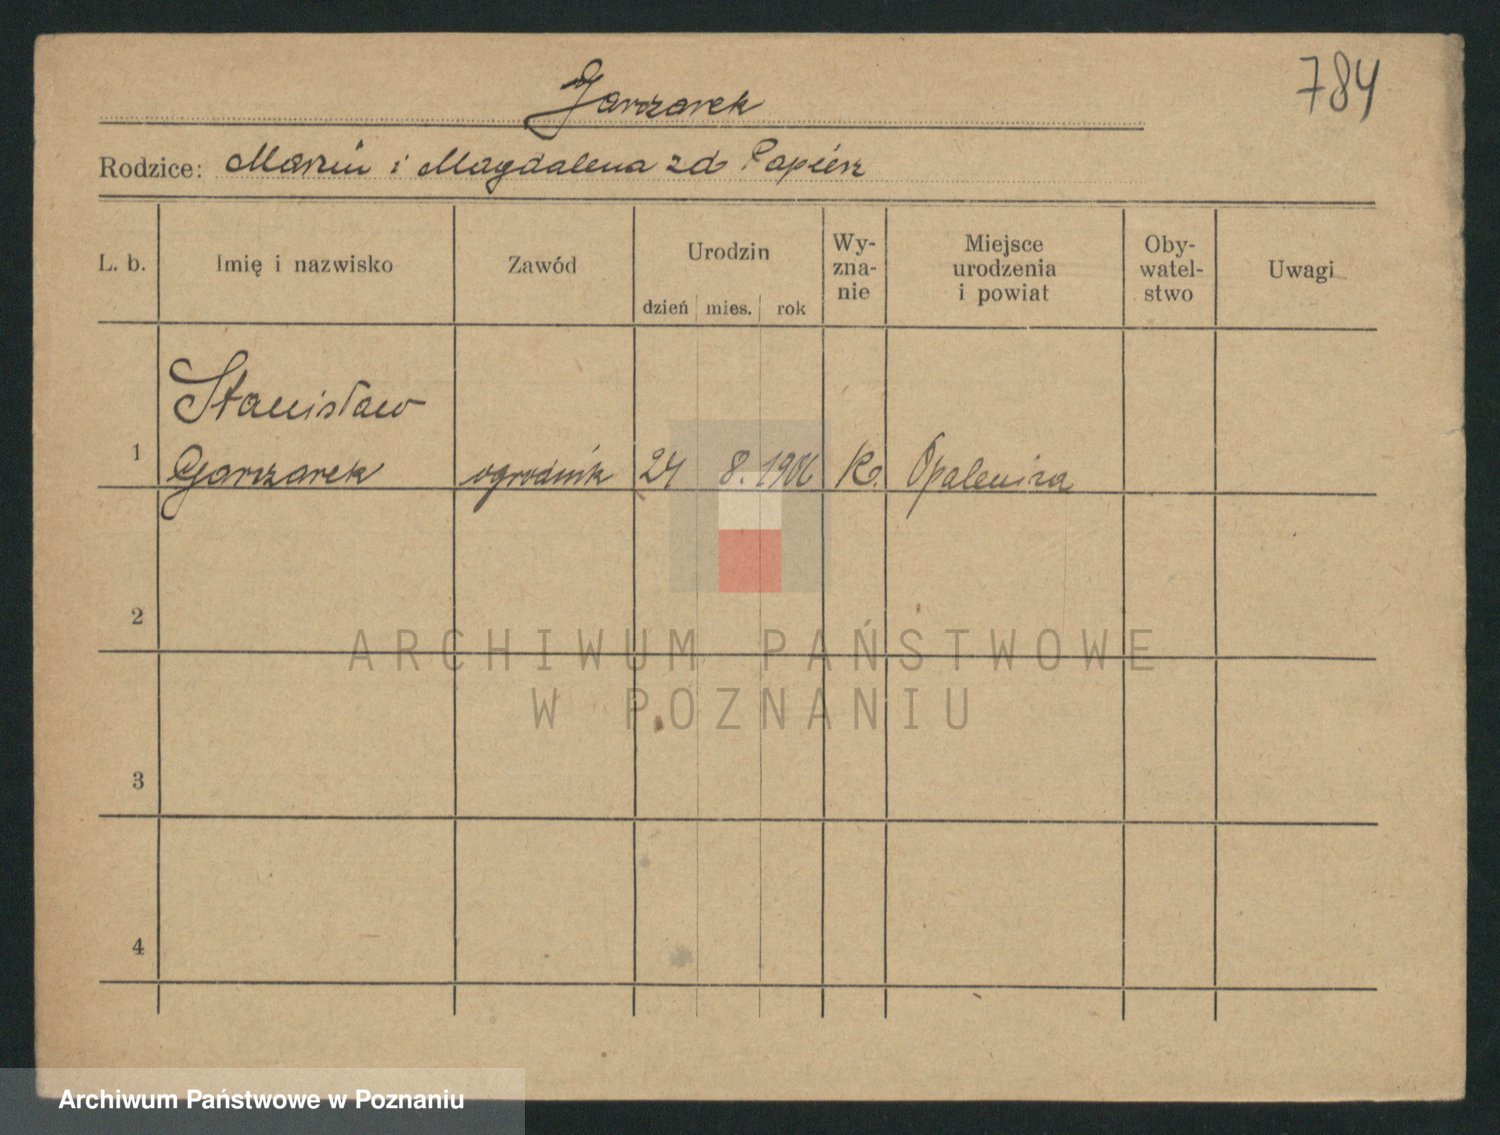 784
Garczarek
Rodzice: Marcin i Magdalena zd Papież
L. b. Imię i nazwisko Zawód Urodzin dzień mies. rok Wy-zna-nie Miejsce urodzenia i powiat Oby-watel-stwo Uwagi
Stanisław
1 Garczarek ogrodnik 24 8. 1906 Rz. Opalenica
2
3
4
ARCHIWUM PAŃSTWOWE
W POZNANIU
Archiwum Państwowe w Poznaniu